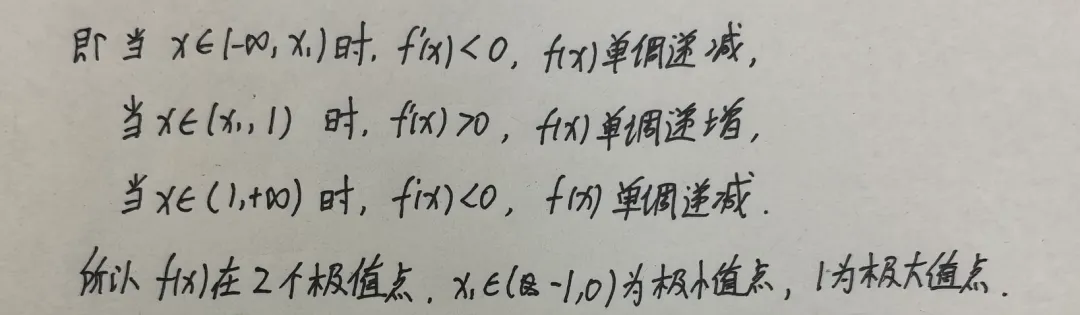 即当 x∈(-∞, x₁)时, f'(x)<0, f(x)单调递减,
当x∈(x₁, 1) 时, f'(x)>0, f(x)单调递增,
当x∈(1,+∞) 时, f'(x)<0, f(x)单调递减.
所以 f(x)在2个极值点, x₁∈(-1,0)为极小值点, 1为极大值点.